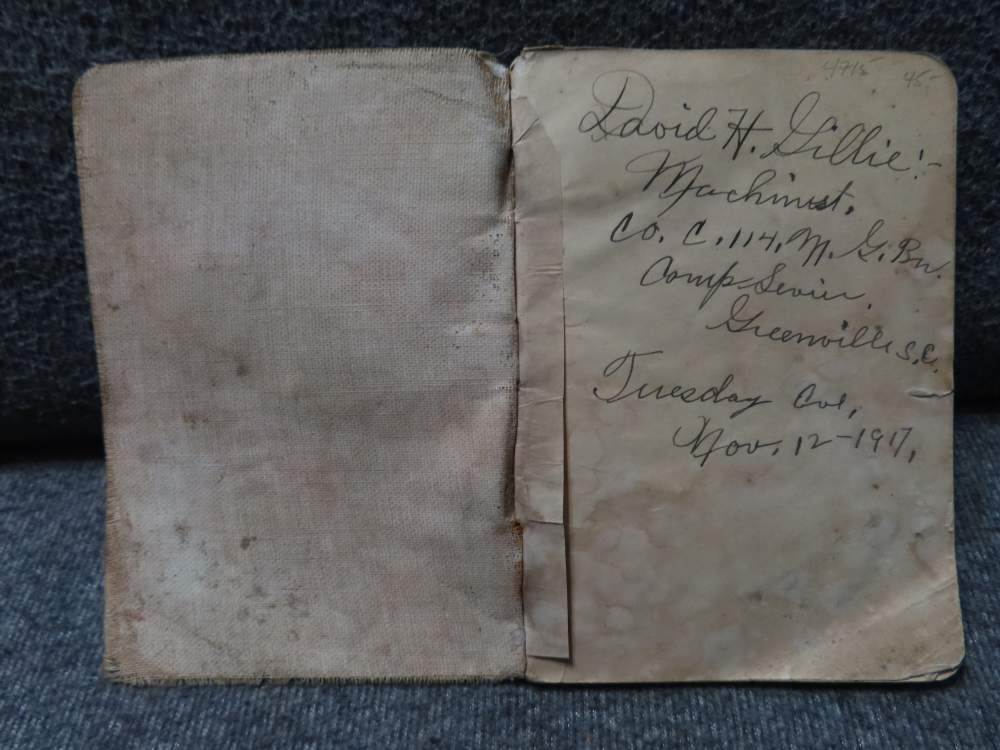 4715 45-
David H. Gillie:-
Machinist.
Co. C. 114, M. G. Bn.
Camp Sevier,
Greenville S.C.
Tuesday Eve,
Nov. 12-1917,